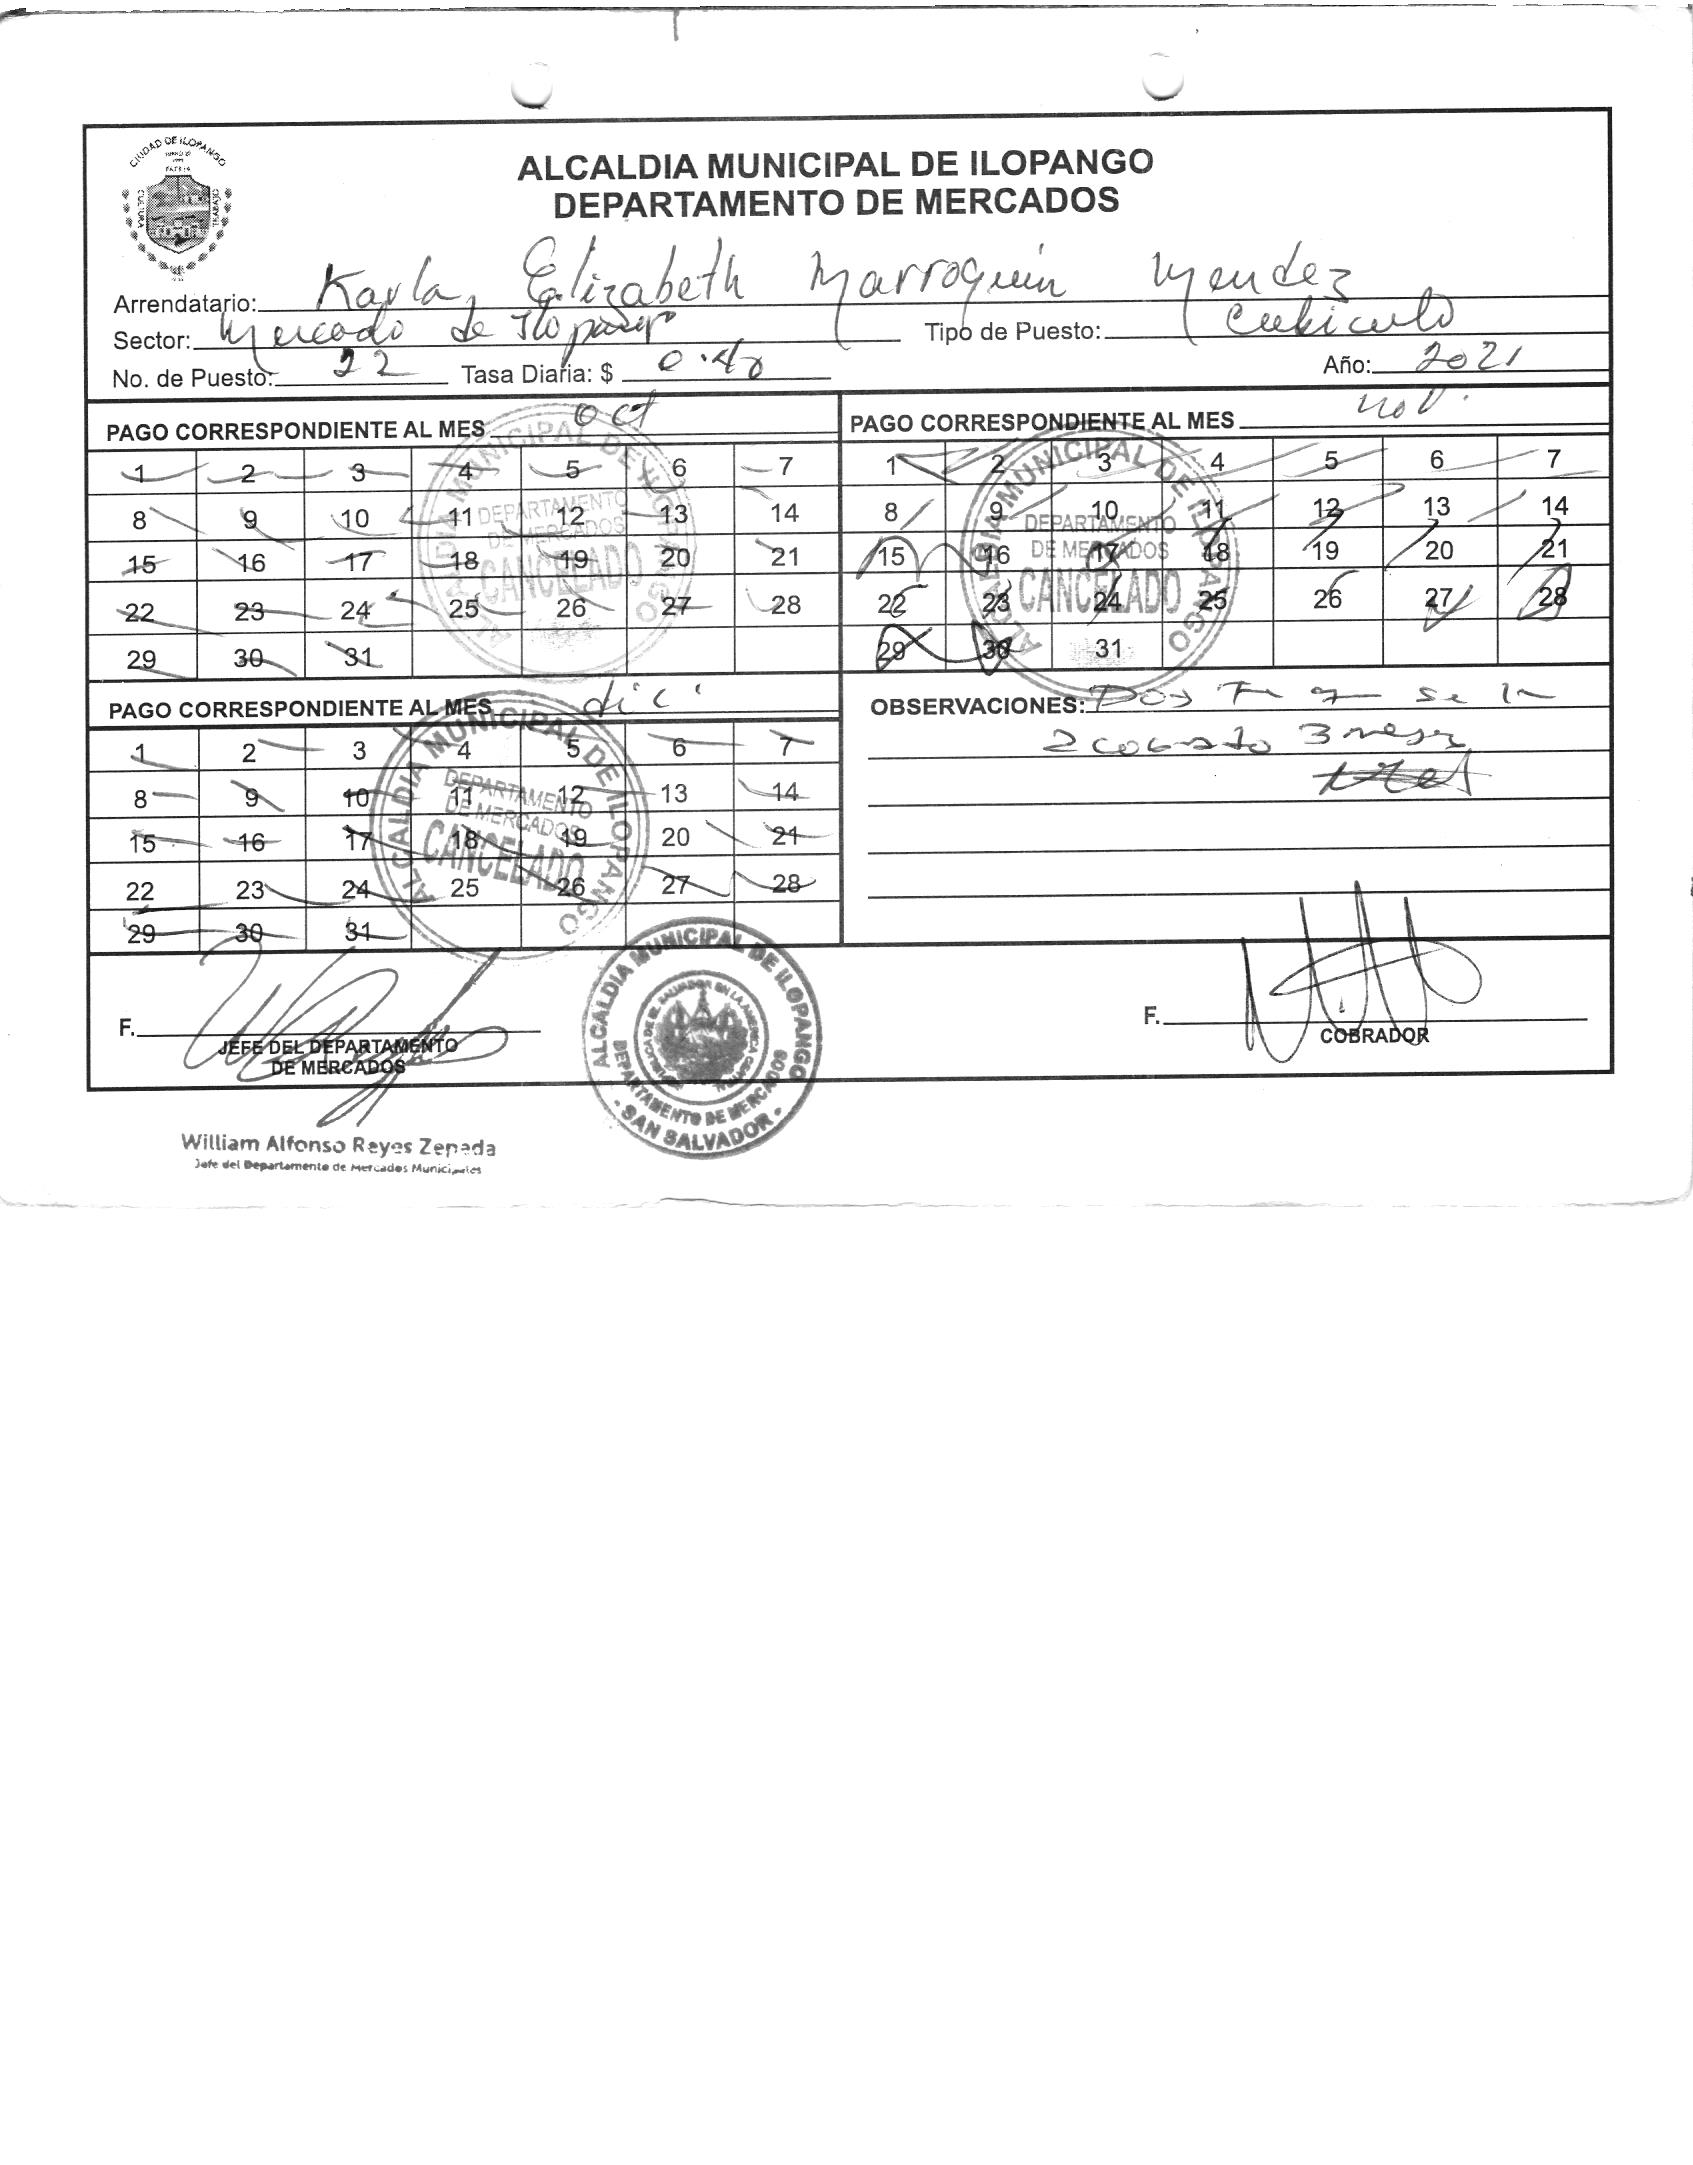 CIUDAD DE ILOPANGO
CULTURA
TRABAJO
ALCALDIA MUNICIPAL DE ILOPANGO
DEPARTAMENTO DE MERCADOS
Arrendatario: Karla Elizabeth Marroquin Mendez
Sector: Mercado de Ilopango Tipo de Puesto: Cubiculo
No. de Puesto: 22 Tasa Diaria: $ 0.40 Año: 2021
PAGO CORRESPONDIENTE AL MES oct
1 2 3 4 5 6 7
8 9 10 11 12 13 14
15 16 17 18 19 20 21
22 23 24 25 26 27 28
29 30 31
ALCALDIA MUNICIPAL DE ILOPANGO
DEPARTAMENTO
DE MERCADOS
CANCELADO
PAGO CORRESPONDIENTE AL MES nov.
1 2 3 4 5 6 7
8 9 10 11 12 13 14
15 16 17 18 19 20 21
22 23 24 25 26 27 28
29 30 31
ALCALDIA MUNICIPAL DE ILOPANGO
DEPARTAMENTO
DE MERCADOS
CANCELADO
PAGO CORRESPONDIENTE AL MES dic
1 2 3 4 5 6 7
8 9 10 11 12 13 14
15 16 17 18 19 20 21
22 23 24 25 26 27 28
29 30 31
ALCALDIA MUNICIPAL DE ILOPANGO
DEPARTAMENTO
DE MERCADOS
CANCELADO
OBSERVACIONES: se le
3
F.
JEFE DEL DEPARTAMENTO
DE MERCADOS
ALCALDIA MUNICIPAL DE ILOPANGO
DEPARTAMENTO DE MERCADOS
- SAN SALVADOR -
F.
COBRADOR
William Alfonso Reyes Zepeda
Jefe del Departamento de Mercados Municipales